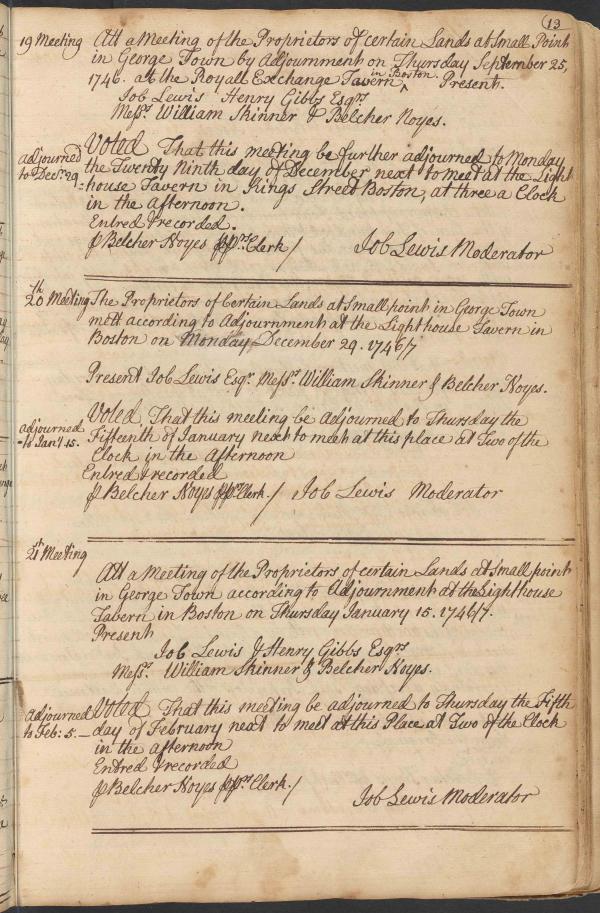 13
19 Meeting
Att a Meeting of the Proprietors of certain Lands at Small Point
in George Town by Adjournment on Thursday September 25,
1746. at the Royall Exchange Tavern in Boston Present.
Job Lewis Henry Gibbs Esqrs
Messrs William Skinner & Belcher Noyes.
adjourned
to Decr. 29
Voted That this meeting be further adjourned to Monday
the Twenty Ninth day of December next to meet at the Light
=house Tavern in Kings Street Boston, at three a Clock
in the afternoon.
Entred & recorded.
p Belcher Noyes pprs Clerk / Job Lewis Moderator
20th Meeting
The Proprietors of Certain Lands at Small point in George Town
mett according to Adjournment at the Lighthouse Tavern in
Boston on Monday December 29. 1746/7
Present Job Lewis Esqr. Messrs William Skinner & Belcher Noyes.
adjourned
to Jany. 15.
Voted, That this meeting be Adjourned to Thursday the
Fifteenth of January next to meet at this place at Two of the
Clock in the afternoon
Entred & recorded
p Belcher Noyes pprs Clerk. / Job Lewis Moderator
21st Meeting
Att a Meeting of the Proprietors of certain Lands at Small point
in George Town according to Adjournment at the Lighthouse
Tavern in Boston on Thursday January 15. 1746/7.
Present
Job Lewis & Henry Gibbs Esqrs
Messrs. William Skinner & Belcher Noyes.
Adjourned
to Feb: 5. –
Voted That this meeting be adjourned to Thursday the Fifth
day of February next to meet at this Place at Two of the Clock
in the afternoon
Entred & recorded
p Belcher Noyes pprs Clerk. / Job Lewis Moderator